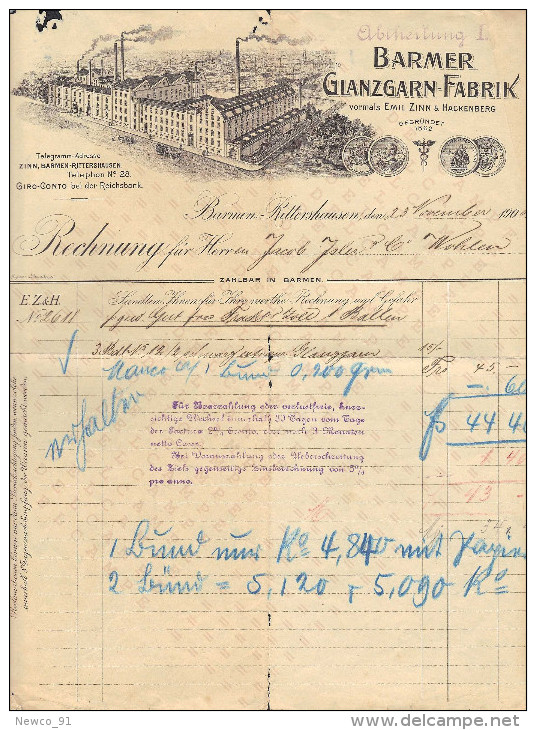 Abtheilung I.
BARMER
GLANZGARN-FABRIK
vormals EMIL ZINN & HACKENBERG
GEGRÜNDET
Telegramm-Adresse
ZINN, BARMEN-RITTERSHAUSEN
Telephon No 28.
GIRO-CONTO bei der Reichsbank.
Barmen-Rittershausen, den 23 November 190
Rechnung für Herren Jacob Isler & Co Wohlen
ZAHLBAR IN BARMEN.
E.Z.&H. Sandten Ihnen für Ihre werthe Rechnung und Gefahr
No 2611 Ballen
3 Glanzgarn 15/- Fro 45,-
Manco 1 Bund 0,200 grm
44 40
Für Baarzahlung oder verlustfreie, kurz-
sichtige Wechsel innerhalb 30 Tagen vom Tage
der Factura 2% Sconto, oder nach 3 Monaten
netto Cassa.
Bei Vorauszahlung oder Ueberschreitung
des Ziels gegenseitige Zinsberechnung von 5%
pro anno.
43 -
1 Bund nur Ko 4,840 mit Papier
2 Bünd = 5,120 + 5,090 Ko
Newco_91
delcampe.net